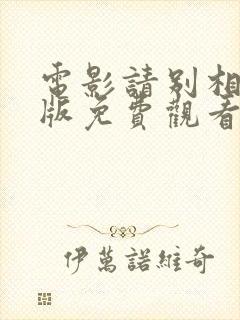 電影請別相
版免費觀看
伊萬諾維奇